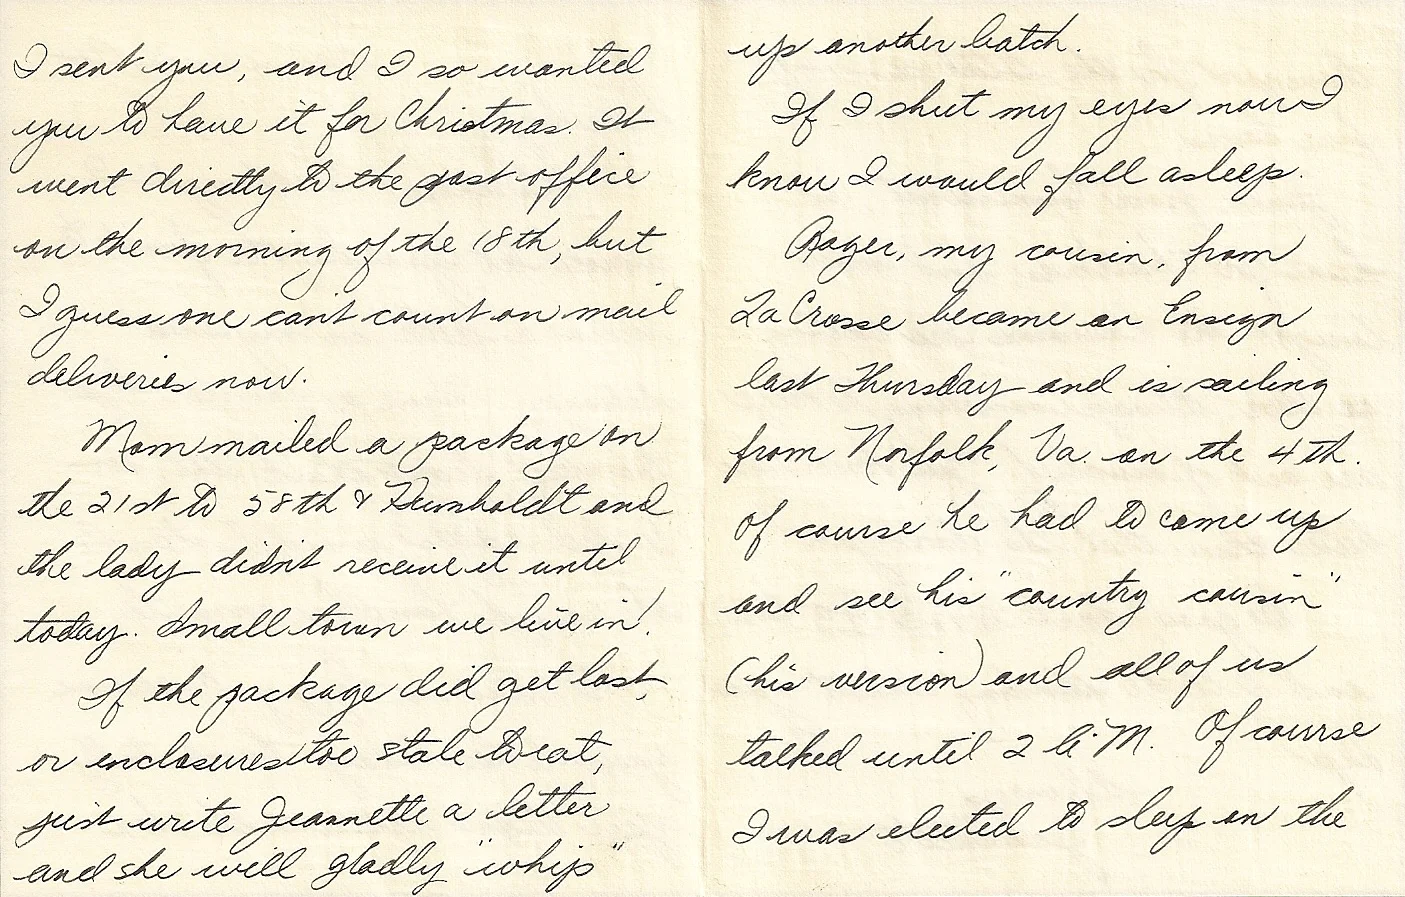 I sent you, and I so wanted
you to have it for Christmas. It
went directly to the post office
on the morning of the 18th, but
I guess one can't count on mail
deliveries now.
Mom mailed a package on
the 21st to 58th & Humboldt and
the lady didn't receive it until
today. Small town we live in!
If the package did get lost,
or enclosures too stale to eat,
just write Jeannette a letter
and she will gladly "whip"
up another batch.
If I shut my eyes now I
know I would fall asleep.
Roger, my cousin, from
La Crosse became an Ensign
last Thursday and is sailing
from Norfolk, Va. on the 4th.
Of course he had to come up
and see his "country cousin"
(his version) and all of us
talked until 2 A.M. Of course
I was elected to sleep on the